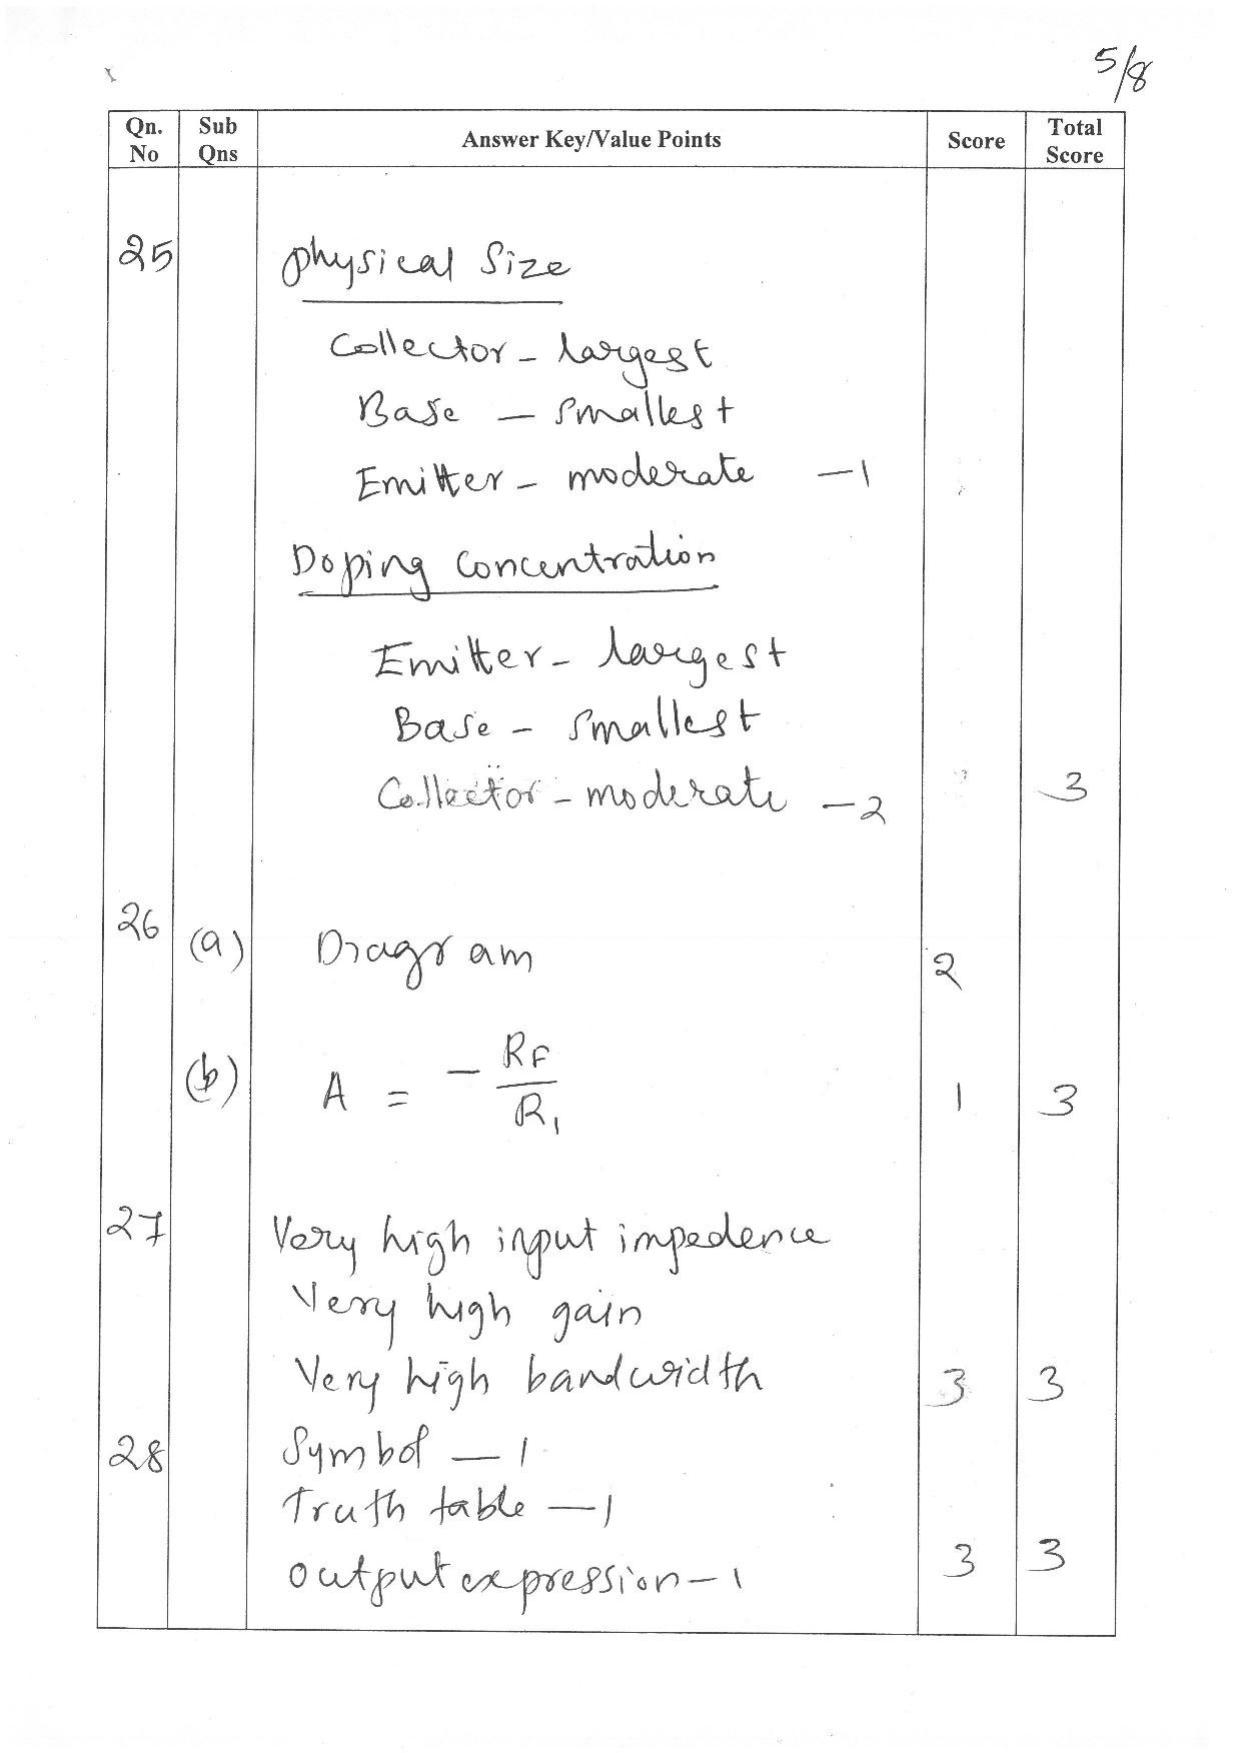 5/8
Qn. No Sub Qns Answer Key/Value Points Score Total Score
25 Physical Size
Collector - largest
Base - smallest
Emitter - moderate -1
Doping Concentration
Emitter - largest
Base - smallest
Collector - moderate -2 3
26 (a) Diagram 2
(b) A = - RF/R1 1 3
27 Very high input impedence
Very high gain
Very high bandwidth 3 3
28 Symbol - 1
Truth table - 1
Output expression - 1 3 3